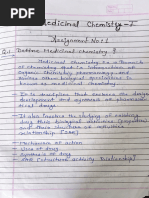 Medicinal Chemistry-I
Assignment No: 1
Q.1. Define Medicinal Chemistry ?
Medicinal Chemistry is a branch
of chemistry that is
Organic Chemistry pharmacology, and
various other biological specialities is
It is discipline that involves the drug
design development and synthesis of pharmaceu-
tical drugs.
It also involves the studying of existing
drugs their biological influence (properties)
and their structure of activities
relationship [SAR]
- Mechanism of action
- Uses of drug
- Synthesis of drug
- SAR [structural activity relationship]